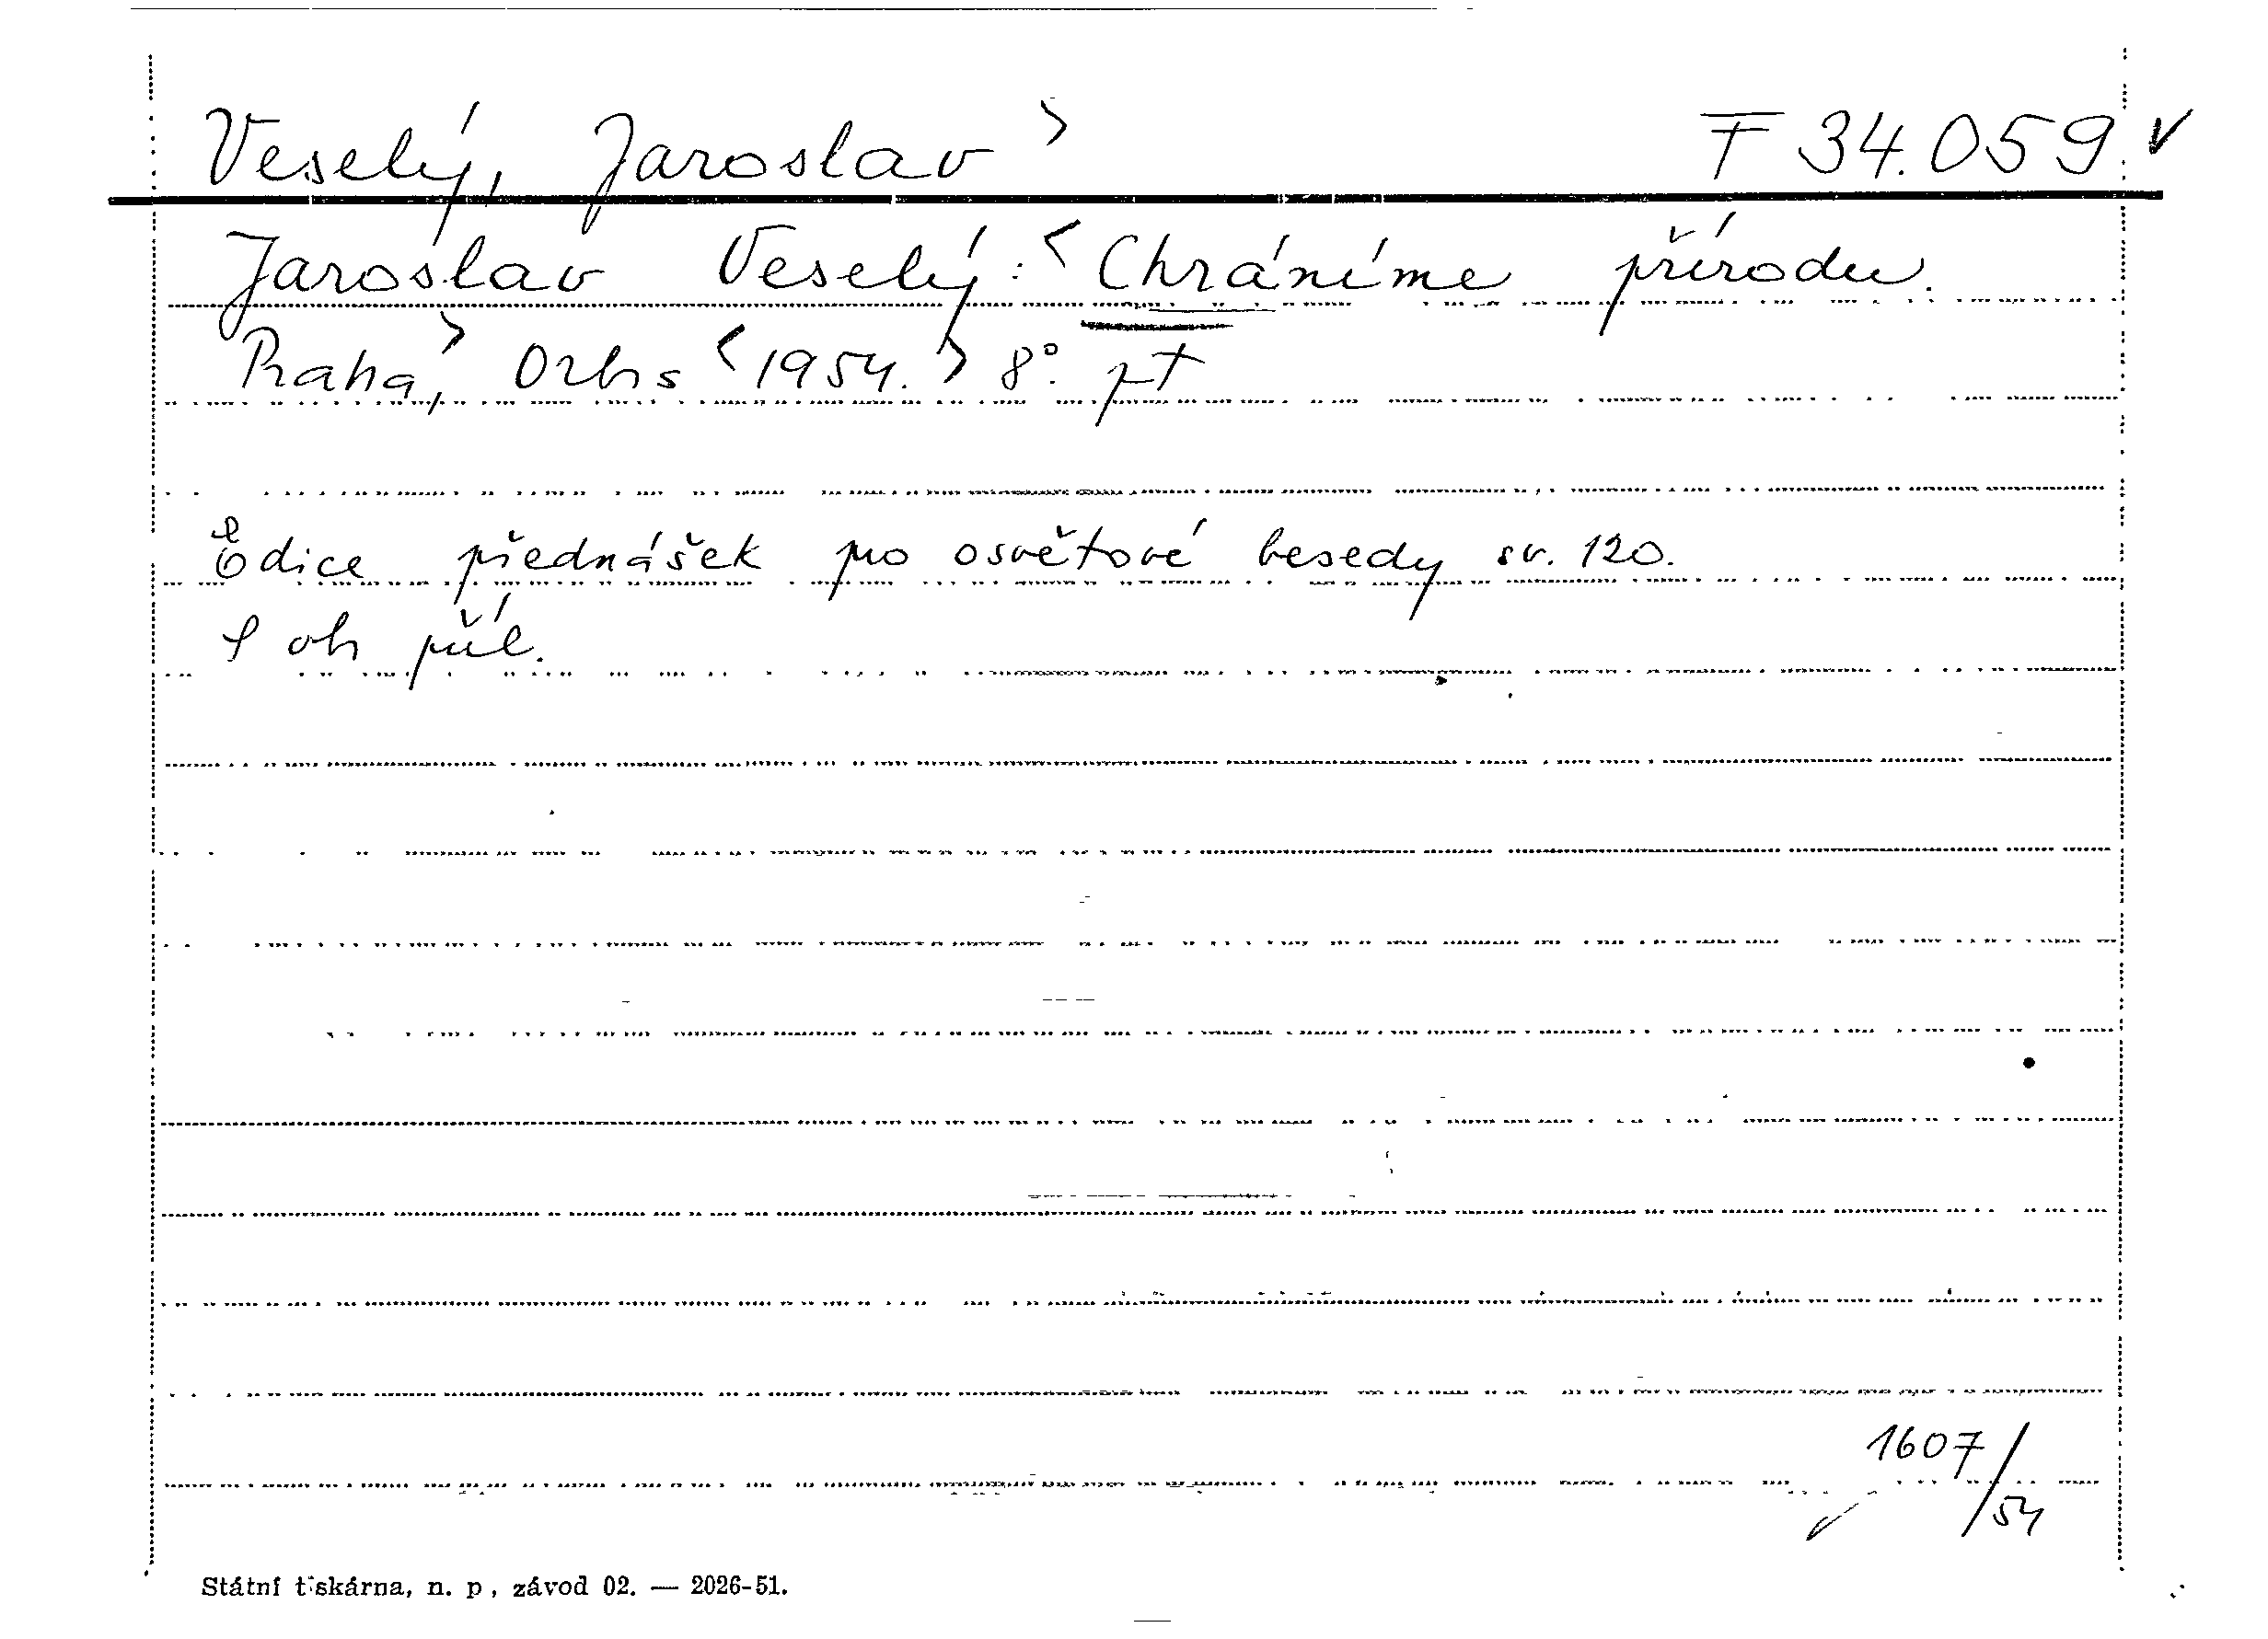 Veselý, Jaroslav > F 34.059. v
Jaroslav Veselý: < Chráníme přírodu.
Praha, > Orbis < 1954. > 8°.
Edice přednášek pro osvětové besedy sv. 120.
S obr. příl.
1607/54
Státní tiskárna, n. p., závod 02. — 2026-51.